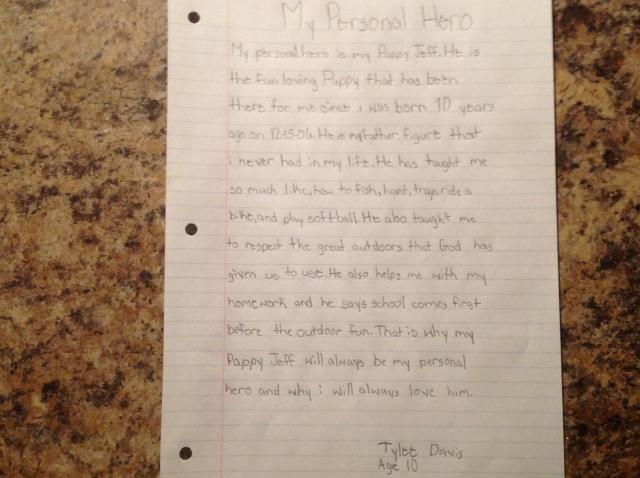 My Personal Hero
My personal hero is my Pappy Jeff. He is
the fun loving Pappy that has been
there for me since i was born 10 years
ago on 12-15-04. He is my father figure that
i never had in my life. He has taught me
so much like, how to fish, hunt, trap, ride a
bike, and play softball. He also taught me
to respect the great outdoors that God has
given us to use. He also helps me with my
homework and he says school comes first
before the outdoor fun. That is why my
Pappy Jeff will always be my personal
hero and why i will always love him.
Tylee Davis
Age 10